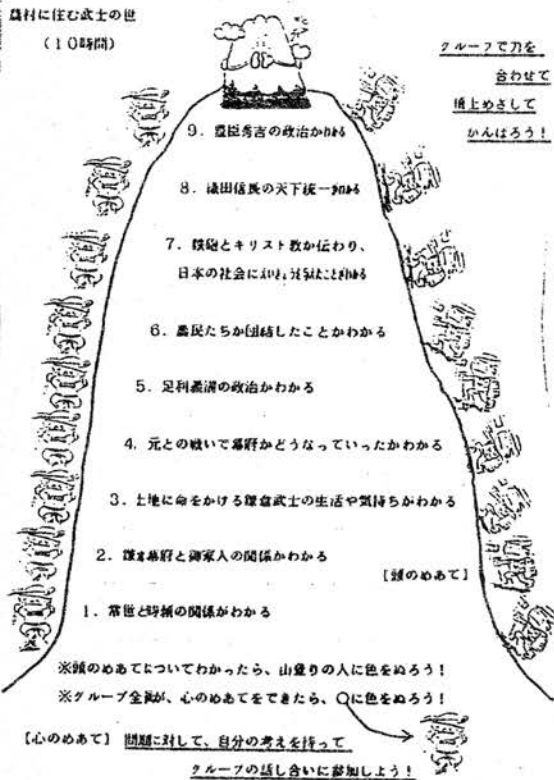 農村に住む武士の世
(10時間)
グループで力を
合わせて
頂上めざして
がんばろう!
9. 豊臣秀吉の政治がわかる
8. 織田信長の天下統一がわかる
7. 鉄砲とキリスト教が伝わり、
日本の社会にえいきょうを与えたことがわかる
6. 農民たちが団結したことがわかる
5. 足利義満の政治がわかる
4. 元との戦いで幕府がどうなっていったかわかる
3. 土地に命をかける鎌倉武士の生活や気持ちがわかる
2. 鎌倉幕府と御家人の関係がわかる
[頭のめあて]
1. 常世と時頼の関係がわかる
※頭のめあてについてわかったら、山登りの人に色をぬろう!
※グループ全員が、心のめあてをできたら、○に色をぬろう!
[心のめあて] 問題に対して、自分の考えを持って
グループの話し合いに参加しよう!